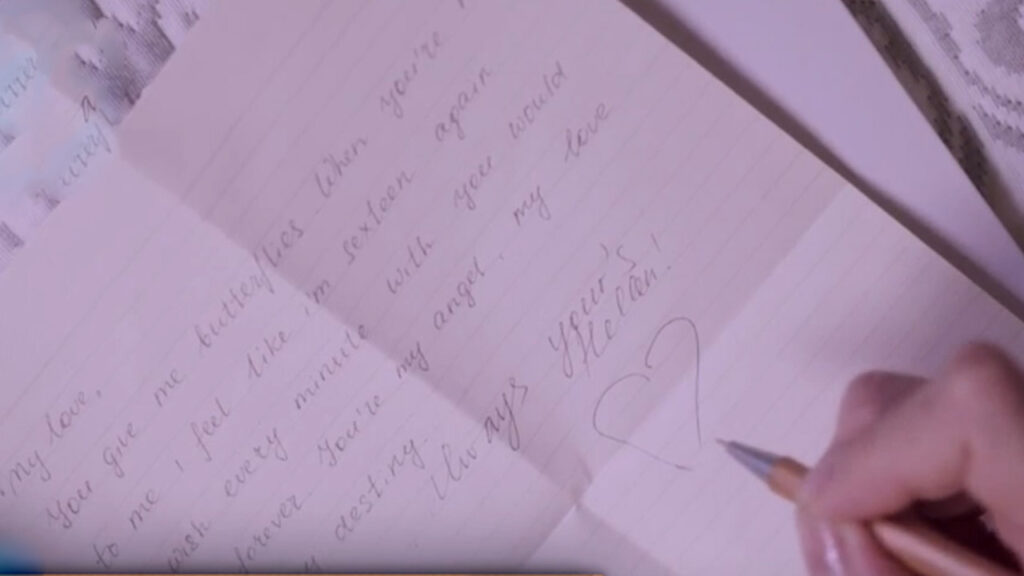 My love,
You give me butterflies when you're
to me, i feel like i'm sexteen again
wish every minute with you would
forever You're my angel, my love
destiny.
Always Your's
Hellen!